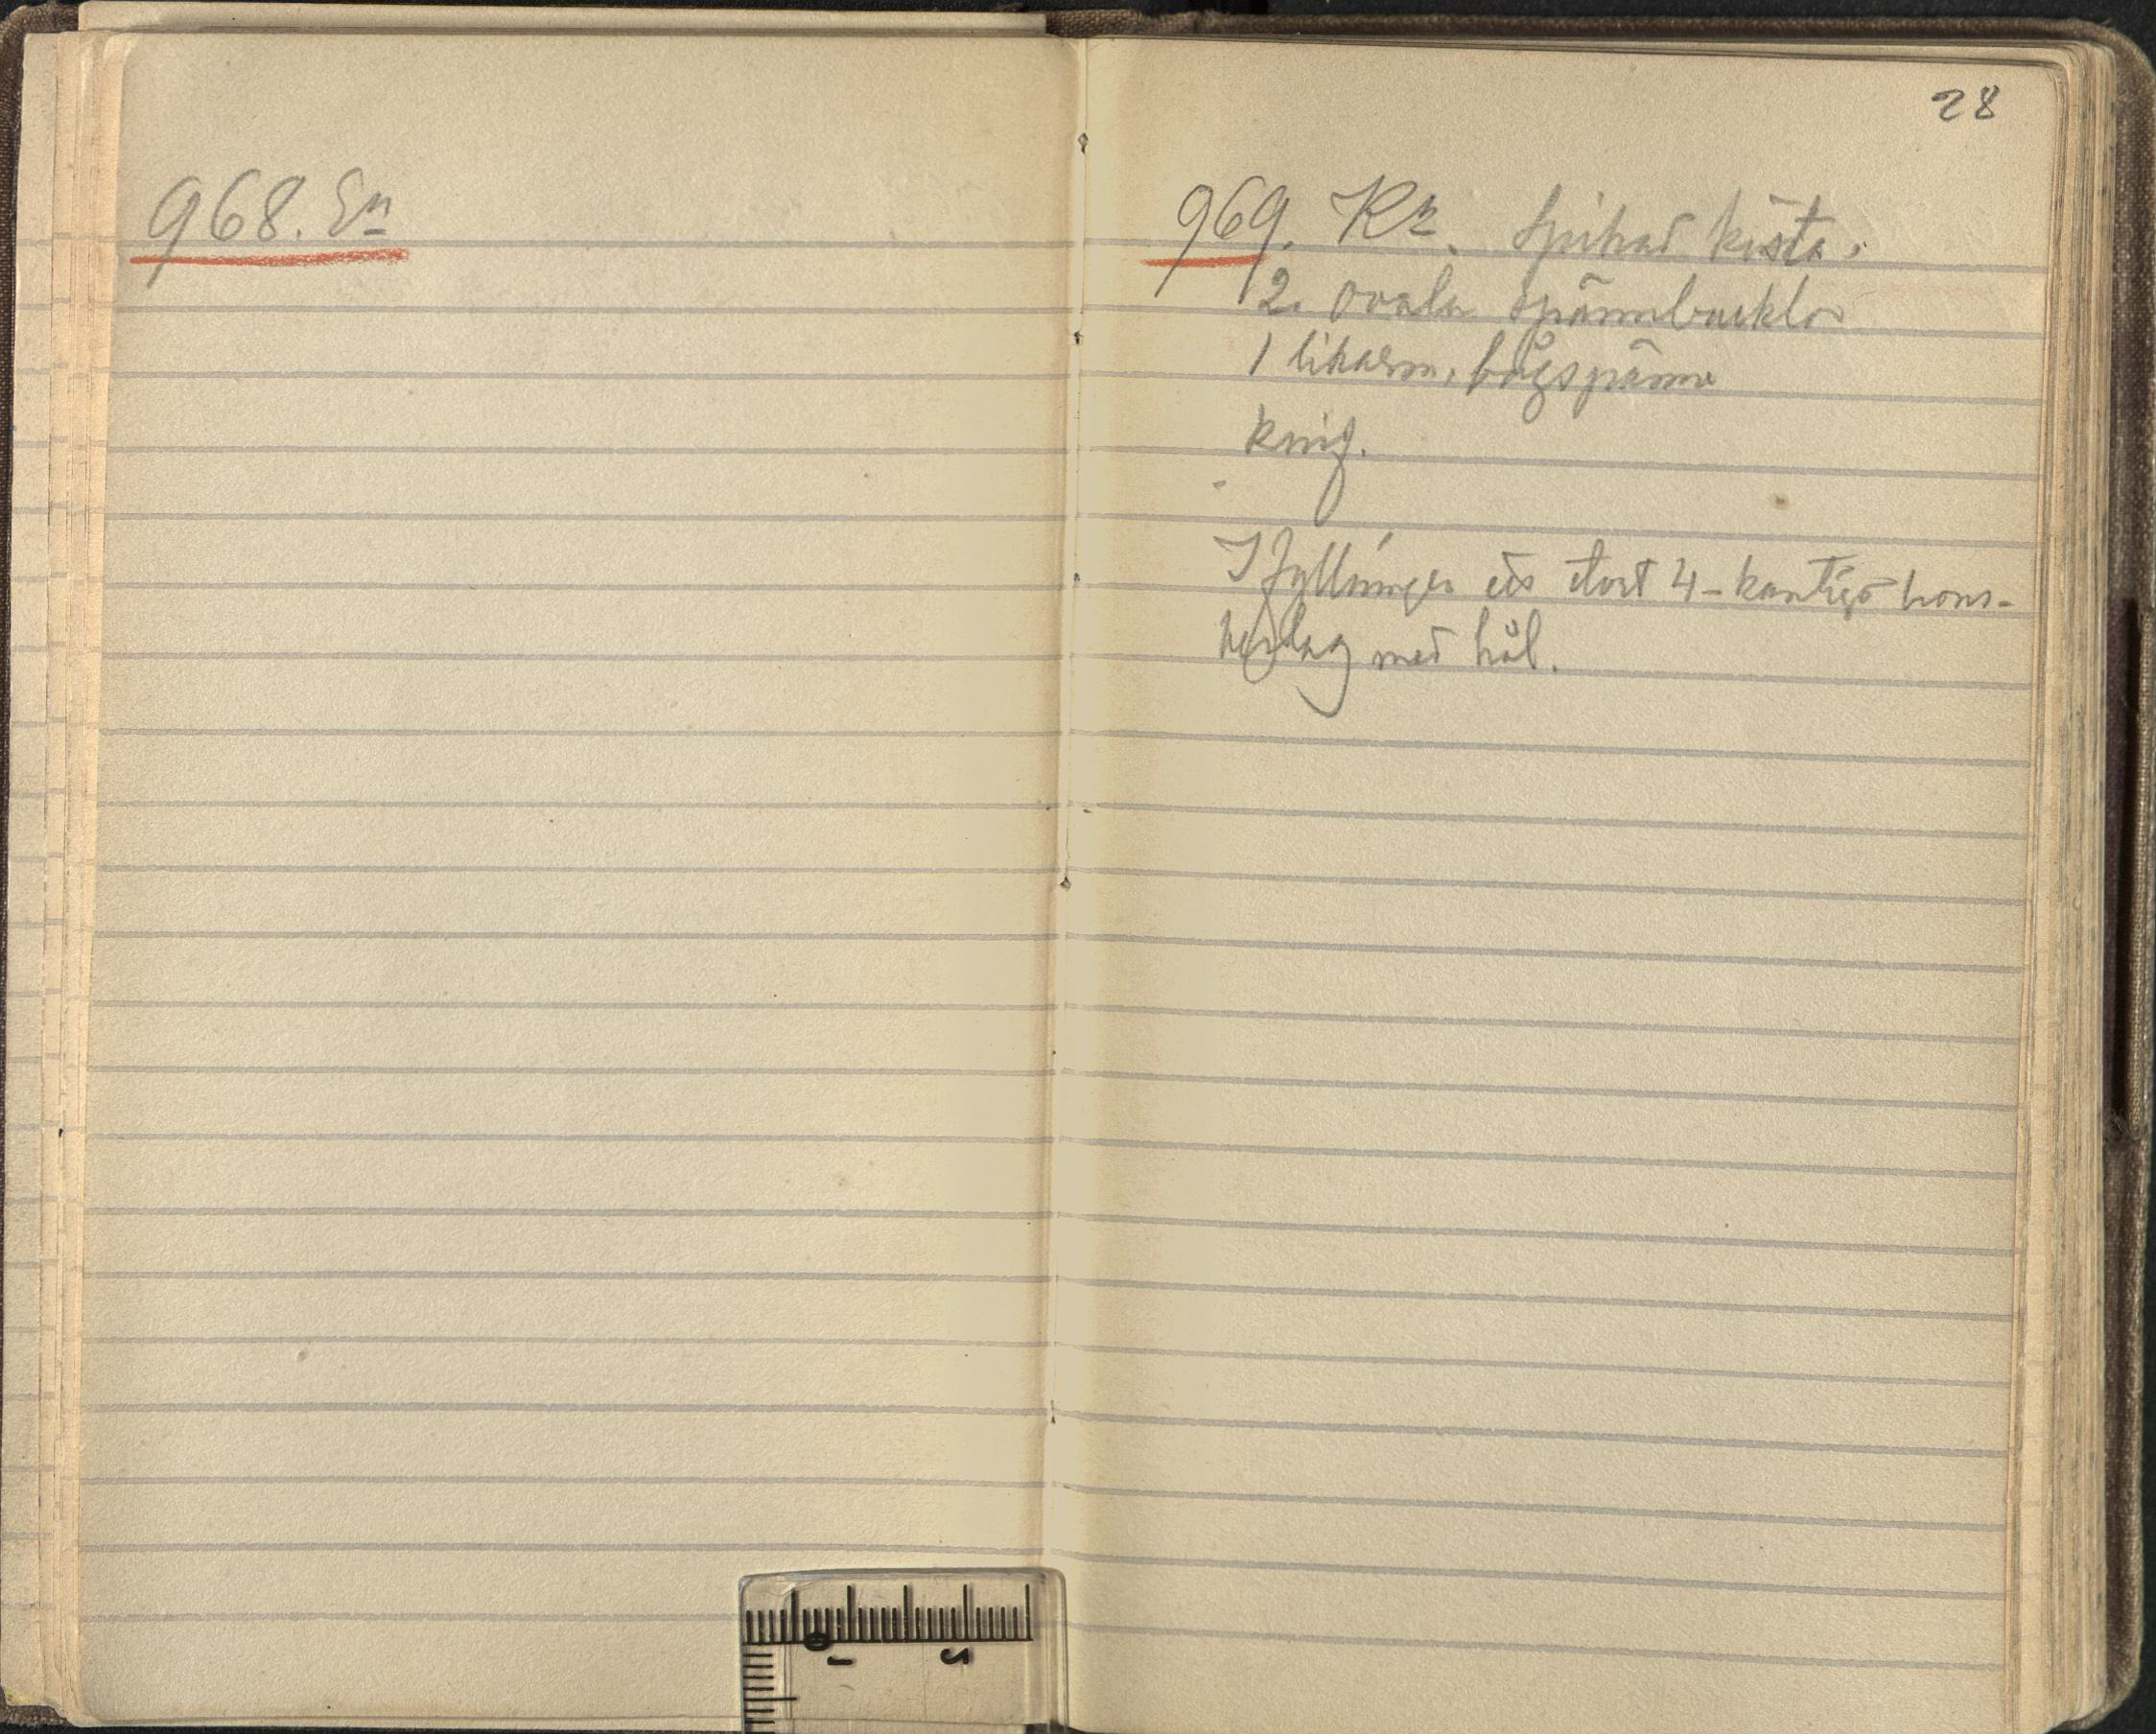 968. En
28
969. Kz. Spikad kista.
2. ovala spännbucklor
1 likarm. bågspänne
kniv.
I fyllningen ett stort 4-kantigt brons-
beslag med hål.